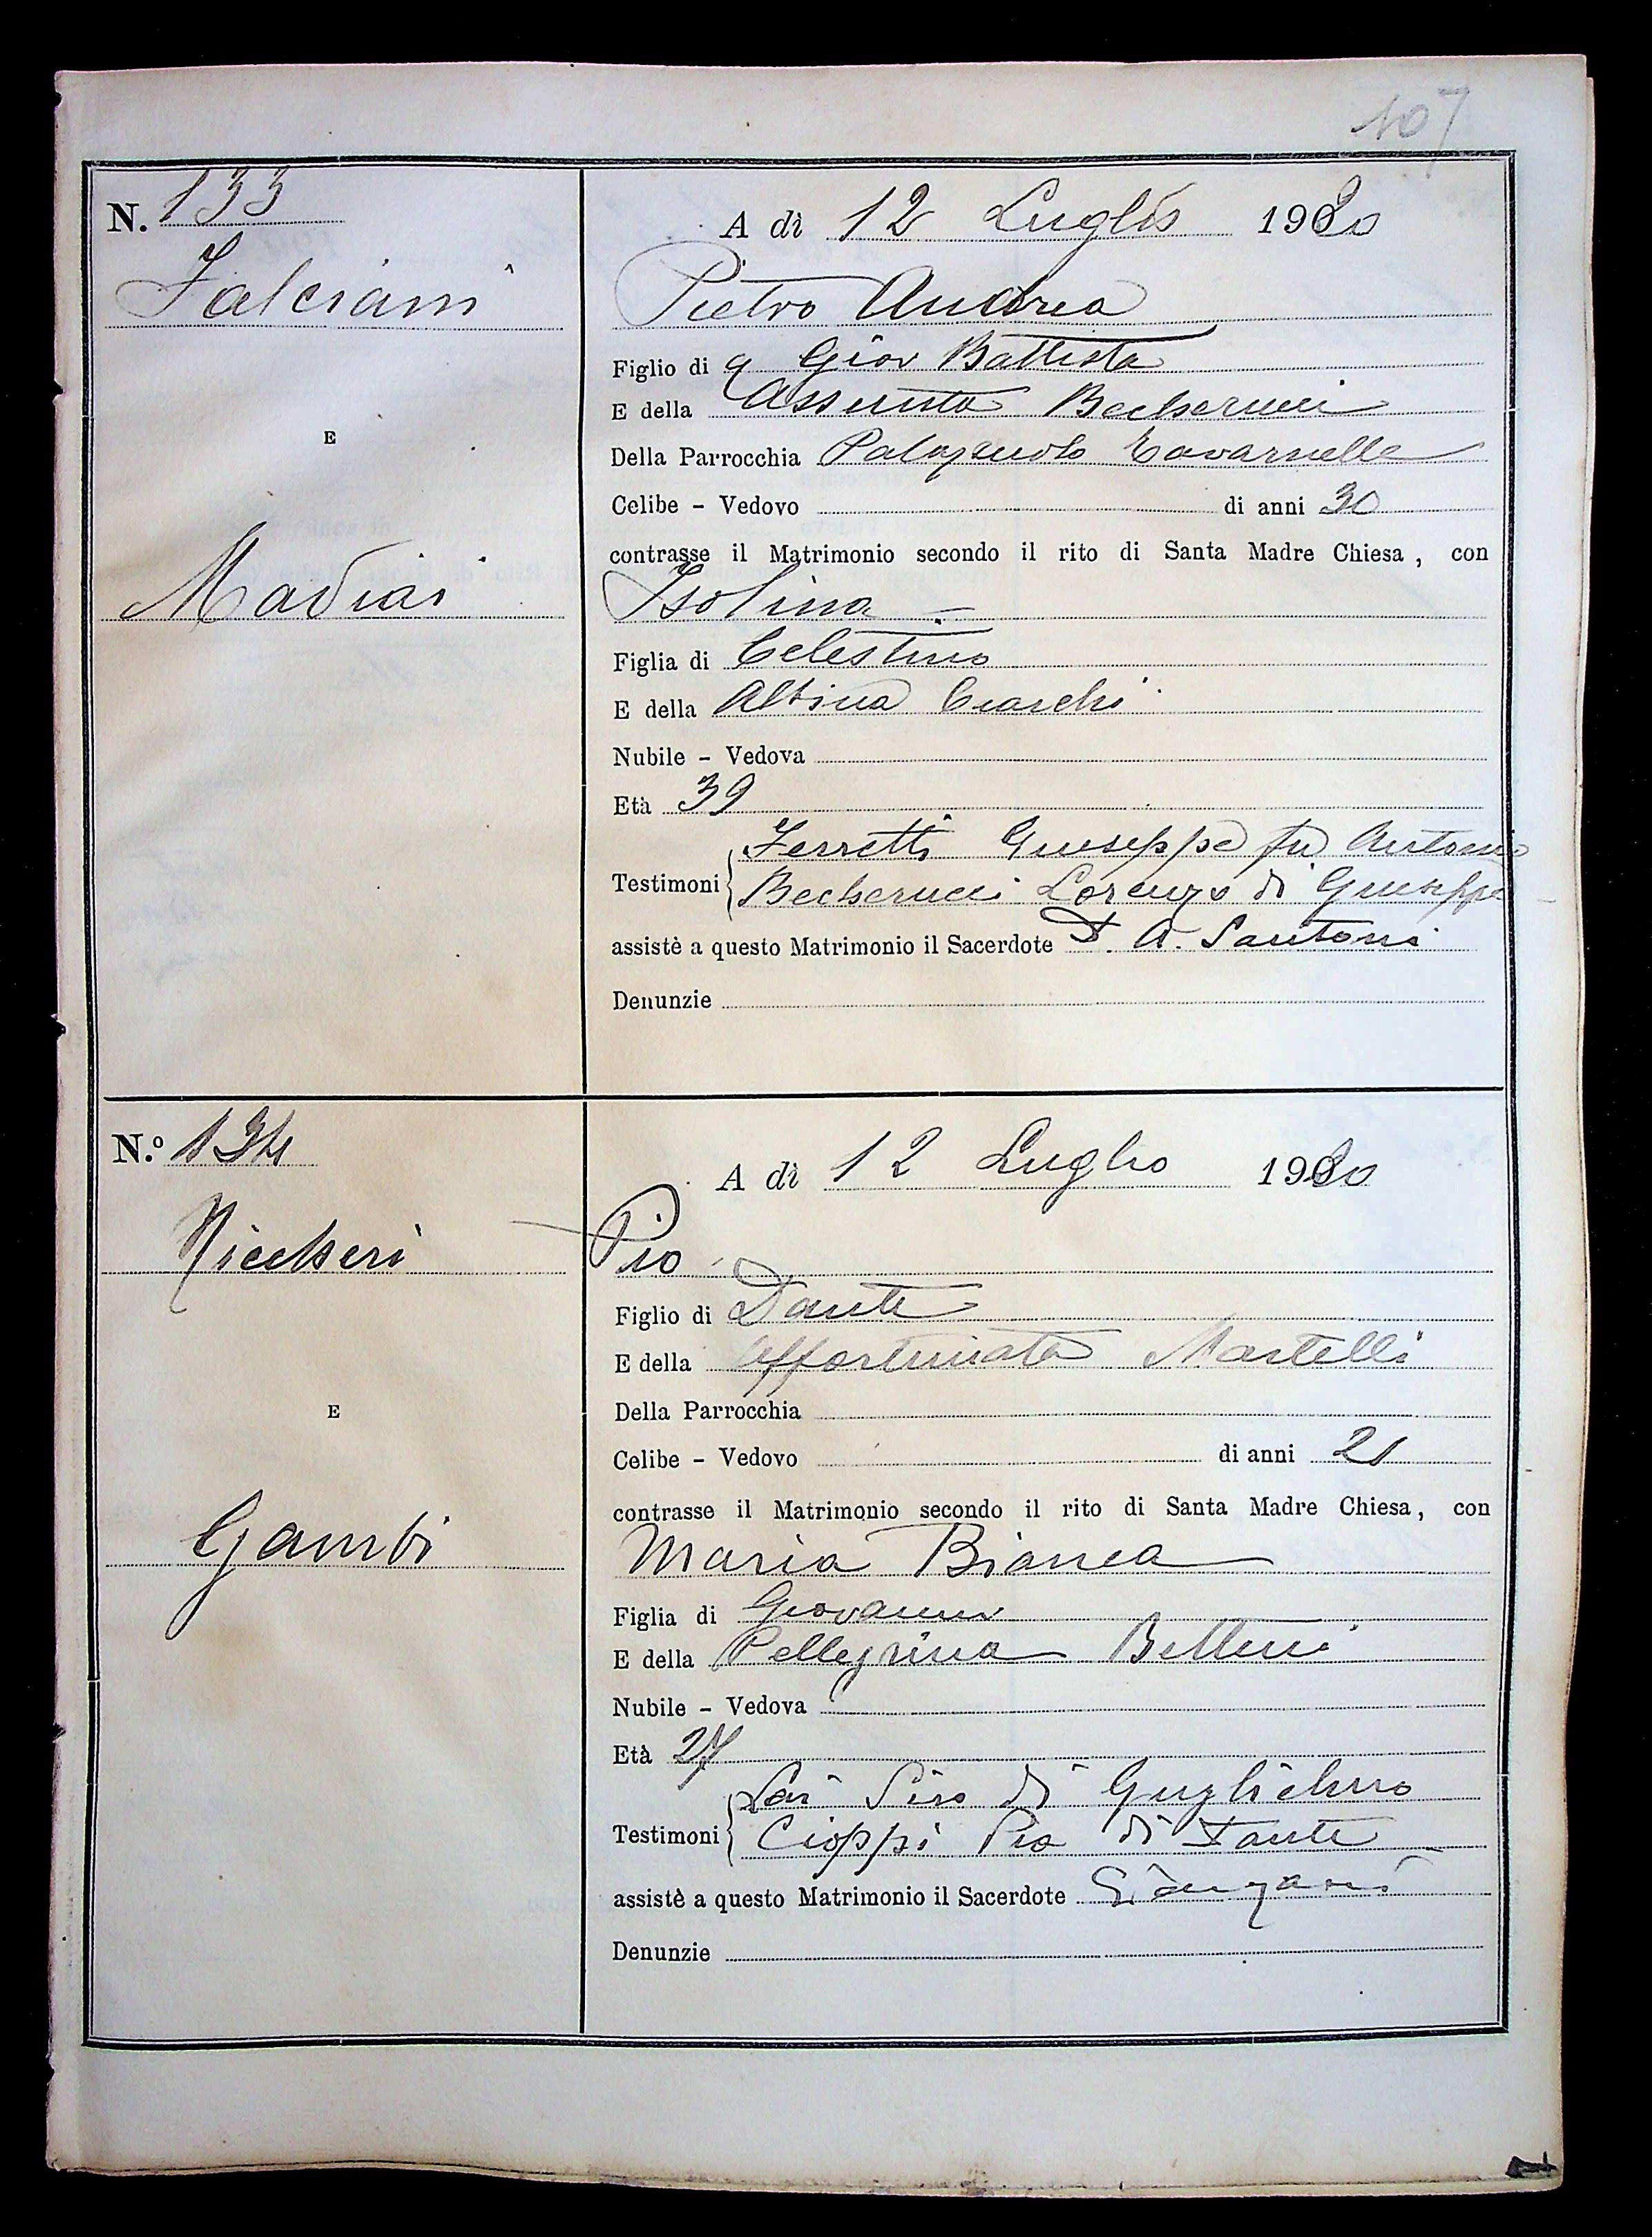 107
N. 133
A dì 12 Luglio 1920
Falciani
Pietro Andrea
Figlio di q Giov Battista
E della Assunta Becherucci
E
Della Parrocchia Palazzuolo Tavarnelle
Celibe – Vedovo di anni 30
contrasse il Matrimonio secondo il rito di Santa Madre Chiesa, con
Madiai
Isolina
Figlia di Celestino
E della Albina Ciaschi
Nubile – Vedova
Età 39
Ferretti Giuseppe fu Antonio
Testimoni
Becherucci Lorenzo di Giuseppe
assistè a questo Matrimonio il Sacerdote D. A. Santoni
Denunzie
N.º 134
A dì 12 Luglio 1920
Niccheri
Pio
Figlio di Dante
E della Affortunata Martelli
E
Della Parrocchia
Celibe – Vedovo di anni 21
contrasse il Matrimonio secondo il rito di Santa Madre Chiesa, con
Gambi
Maria Bianca
Figlia di Giovanni
E della Pellegrina Bettini
Nubile – Vedova
Età 27
Siro di Guglielmo
Testimoni
Cioppi Pio di Dante
assistè a questo Matrimonio il Sacerdote
Denunzie